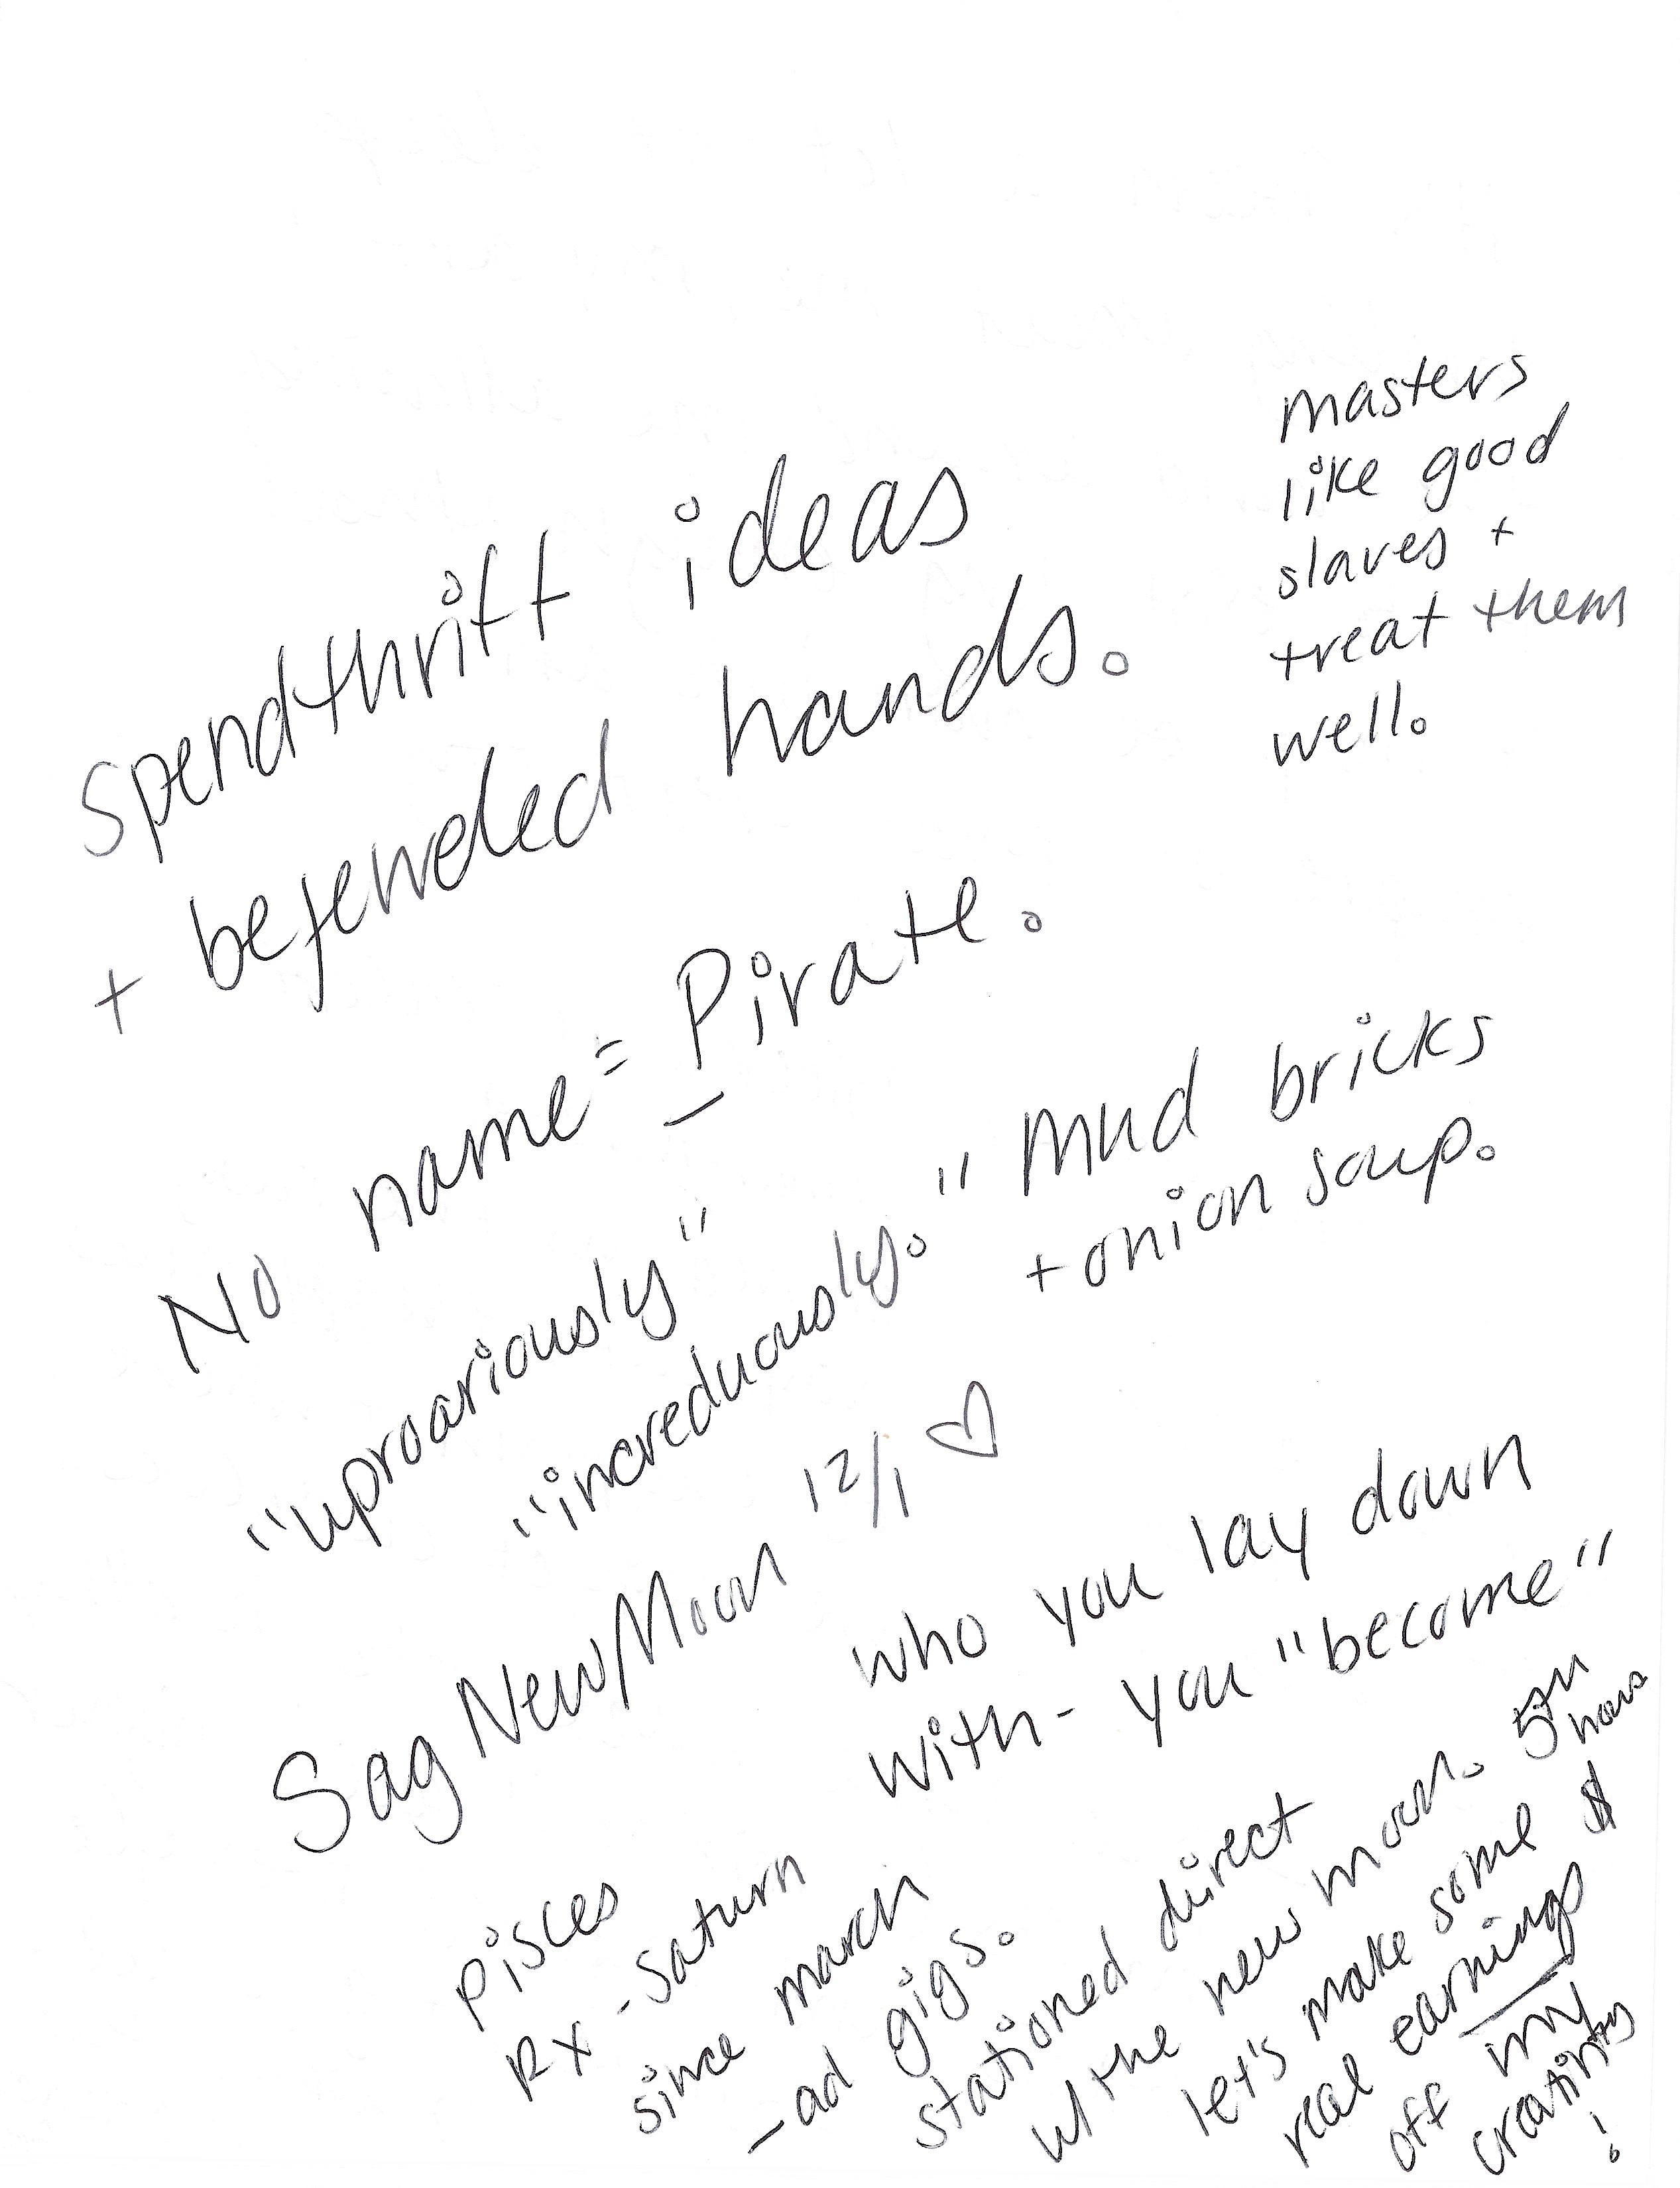 masters
like good
slaves +
treat them
well.
spendthrift ideas
+ bejeweled hands.
No name = Pirate.
"uproariously"
"increduously." Mud bricks
+ onion soup.
Sag New Moon 12/1 ♡
who you lay down
with - you "become"
pisces
Rx - saturn
since march
- ad gigs.
stationed direct
w/ the new moon.
hours
let's make some $
real earnings
off my
creativity
!